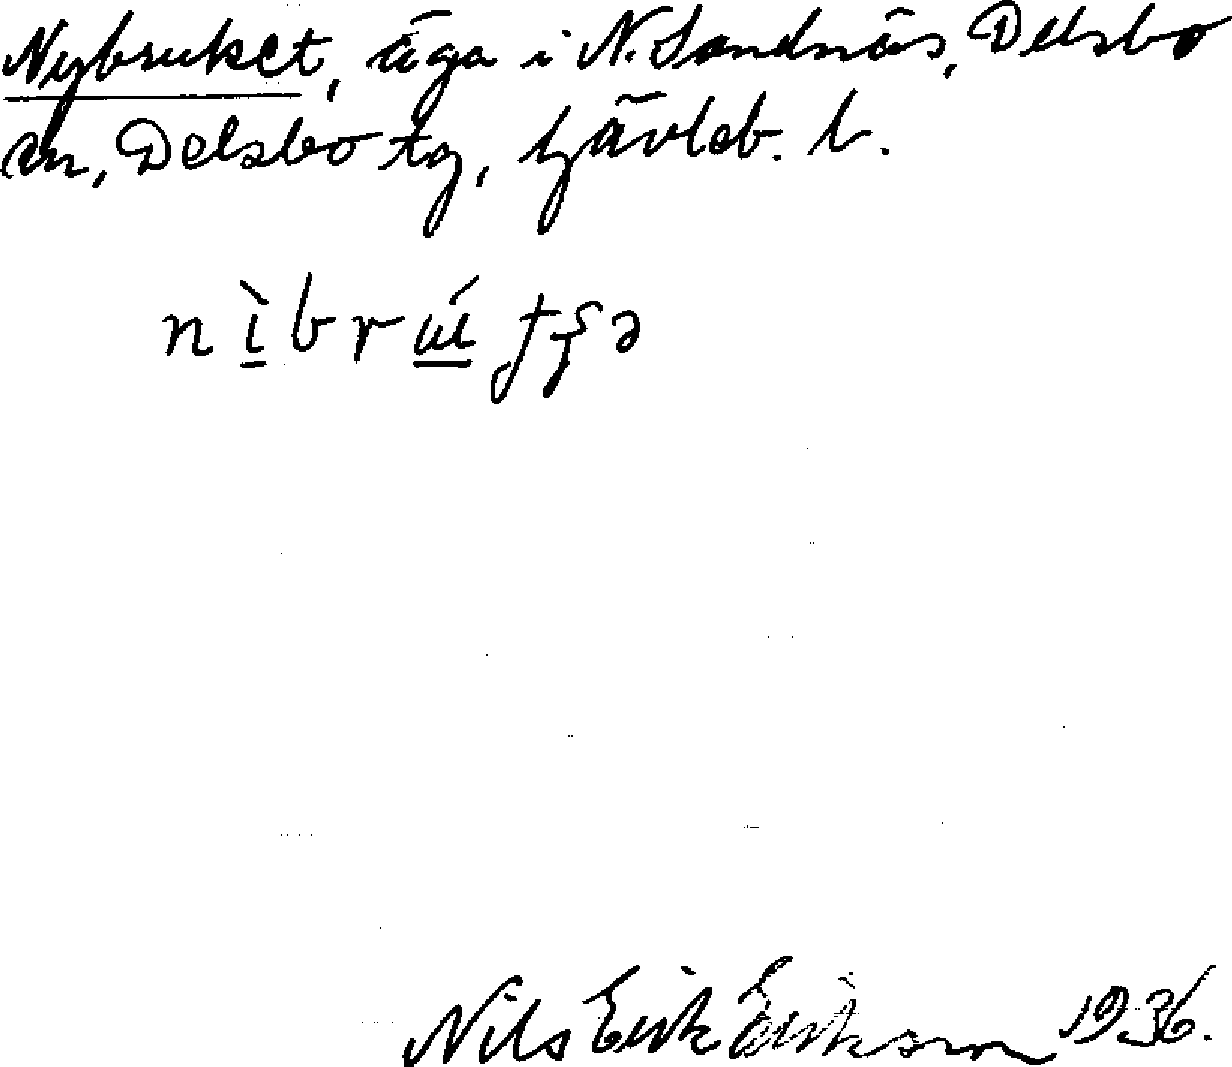 Nybruket, äga i N. Sandnäs, Delsbo
sn, Delsbo tg, Gävleb. l.
Nils Erik Eriksson 1936.